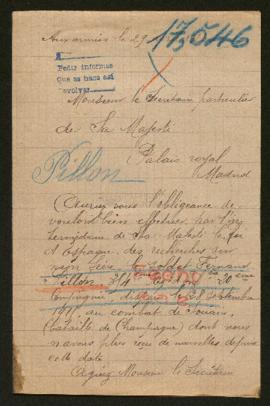 Aux armées le 29
17,546
A
Pedir informes
que se hace así
devolver
Monsieur le Secrétaire particulier
de Sa Majesté
Palais royal
Madrid
Pillon
vous l'obligeance de
vouloir bien effectuer par l'
de Sa Majesté le Roi
d'Espagne, des recherches sur
mon frère, le soldat Fernand
Pillon
Compagnie disparu septembre
au combat de Souain
(bataille de Champagne) dont nous
n'avons plus reçu de nouvelles depuis
cette date
Agréez Monsieur le Secrétaire